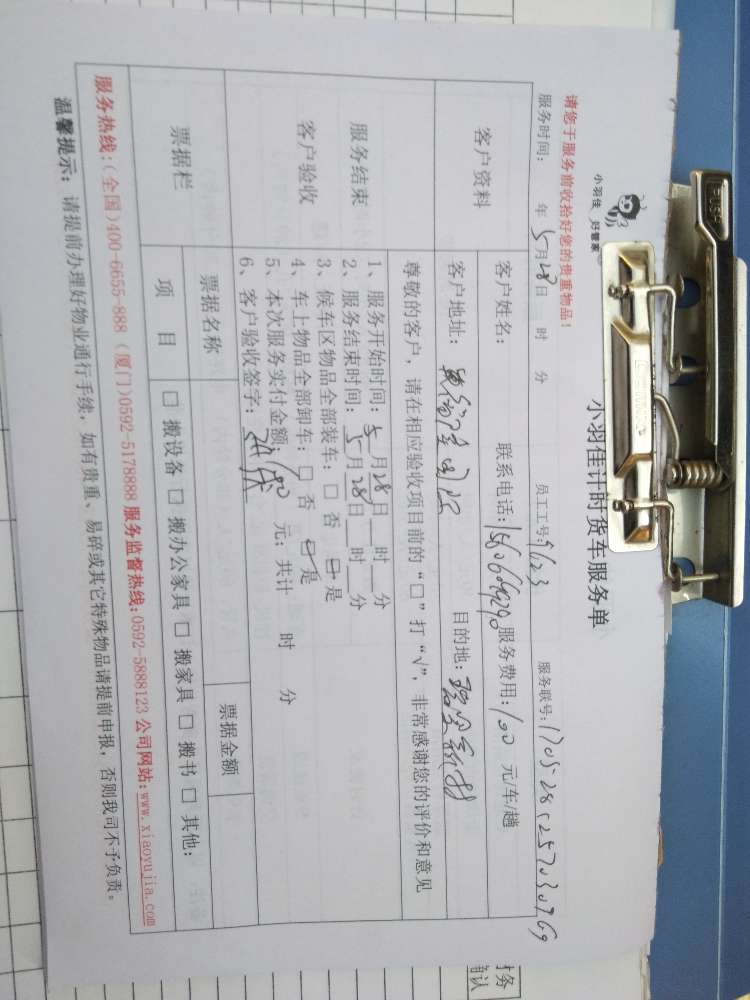 小羽佳 好管家
小羽佳计时货车服务单
请您于服务前收拾好您的贵重物品！
服务时间： 年 5月28日 时 分 员工工号：9623 服务联号：
客户资料
客户姓名： 联系电话： 服务费用：100 元/车/趟
客户地址： 国际 目的地：
尊敬的客户，请在相应验收项目前的“□”打“√”，非常感谢您的评价和意见
服务结束
客户验收
1、服务开始时间：5月28日 时 分
2、服务结束时间：5月28日 时 分
3、候车区物品全部装车：□ 否 □ 是
4、车上物品全部卸车：□ 否 □ 是
5、本次服务实付金额：100 元；共计 时 分
6、客户验收签字：
票据栏
票据名称 票据金额
项 目 □ 搬设备 □ 搬办公家具 □ 搬家具 □ 搬书 □ 其他：
服务热线：(全国)400-6655-888 (厦门)0592-5178888 服务监督热线：0592-5888123 公司网站：www.xiaoyujia.com
温馨提示：请提前办理好物业通行手续，如有贵重、易碎或其它特殊物品请提前申报，否则我司不予负责。